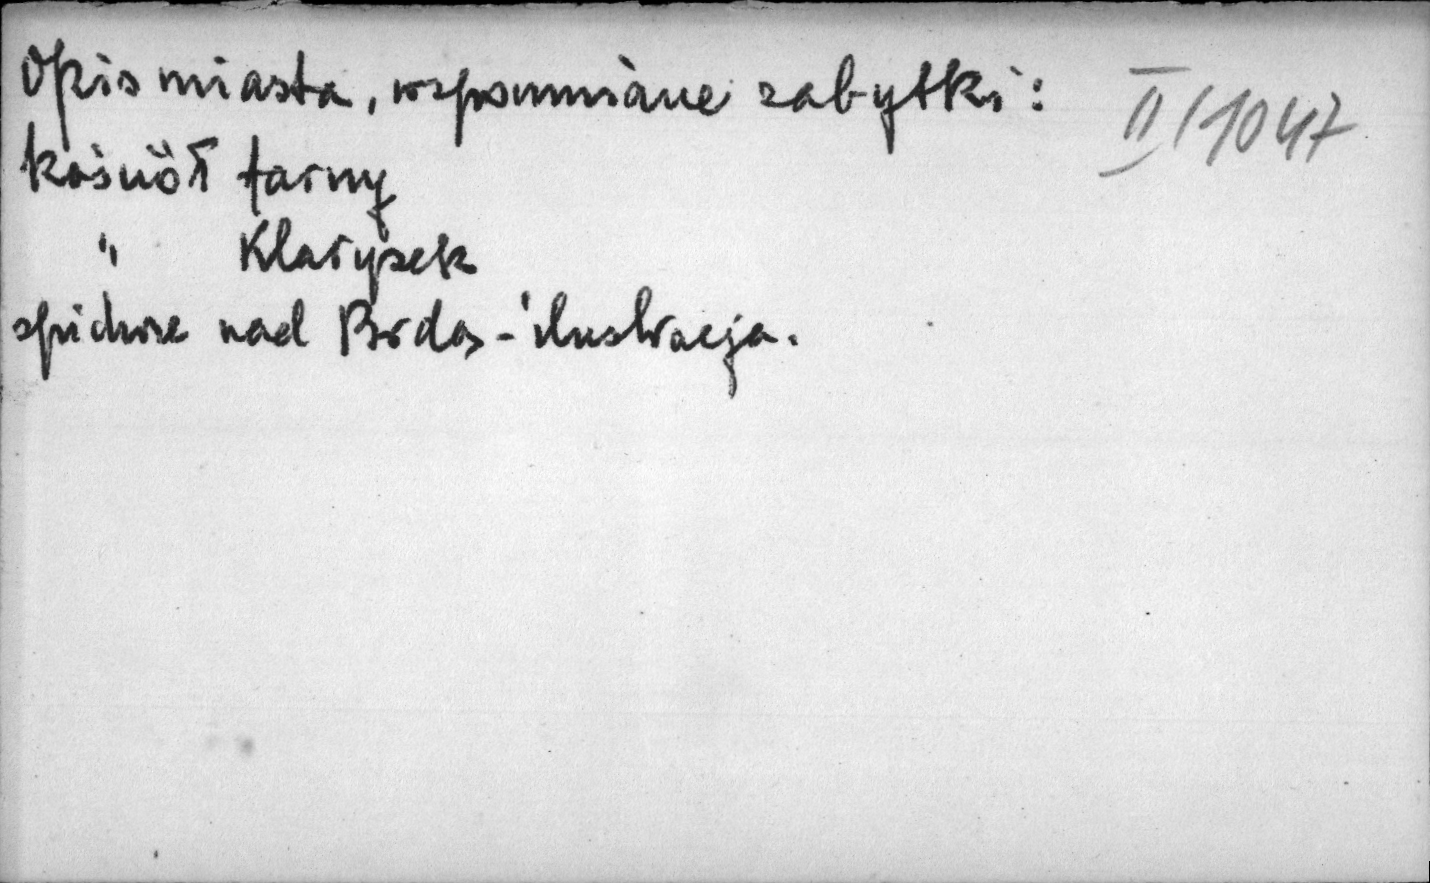 Opis miasta, wspomniane zabytki:
II/1047
kościół farny
" Klarysek
spichrze nad Brdą - ilustracja.